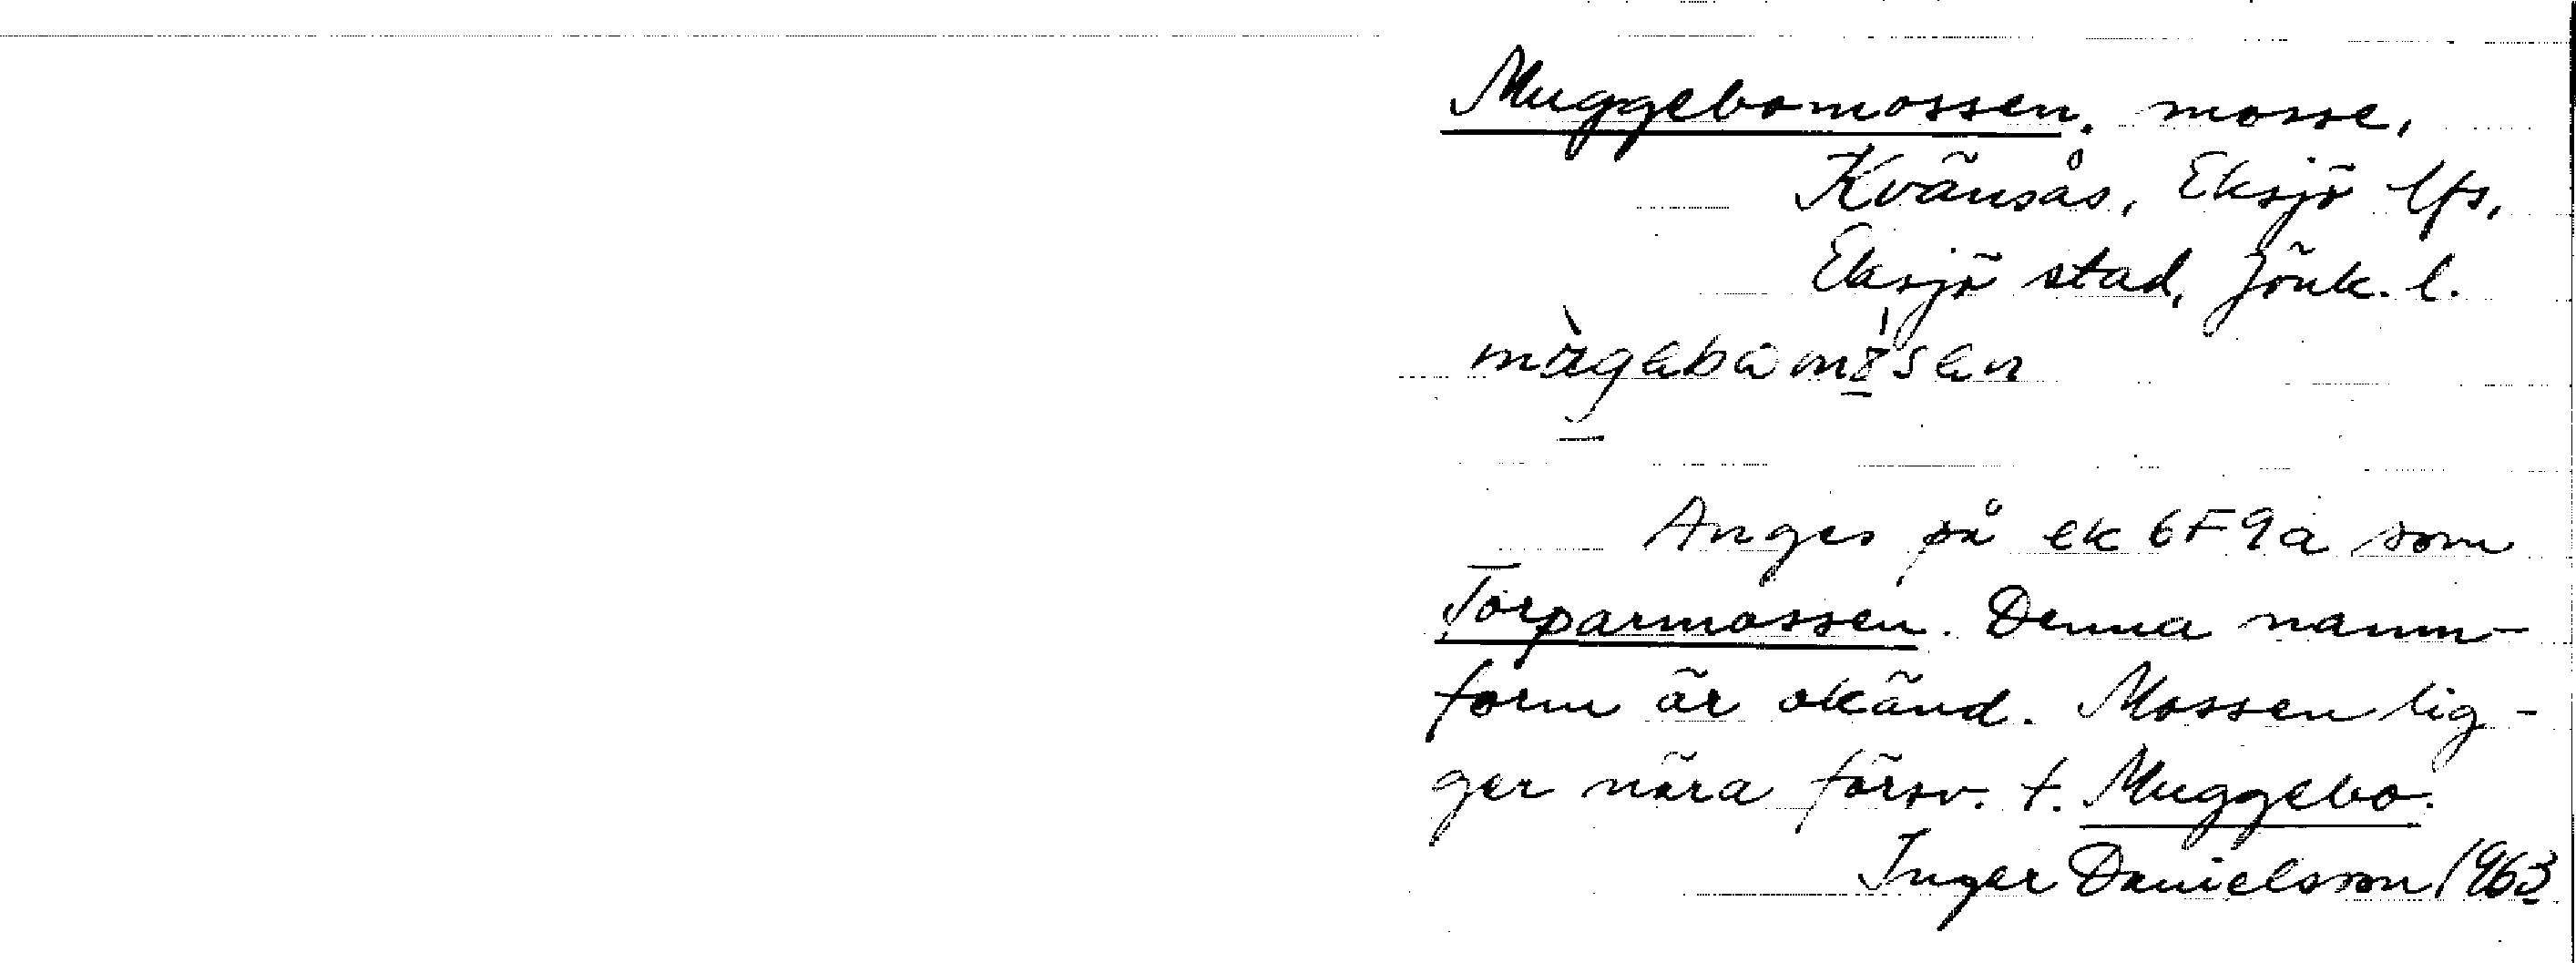 Muggebomossen, mosse,
Kvänsås, Eksjö lfs,
Eksjö stad, Jönk. l.
Anges på ek 6F9a som
Torparmossen. Denna namn-
form är okänd. Mossen lig-
ger nära försv. t. Muggebo.
Inger Danielsson 1963